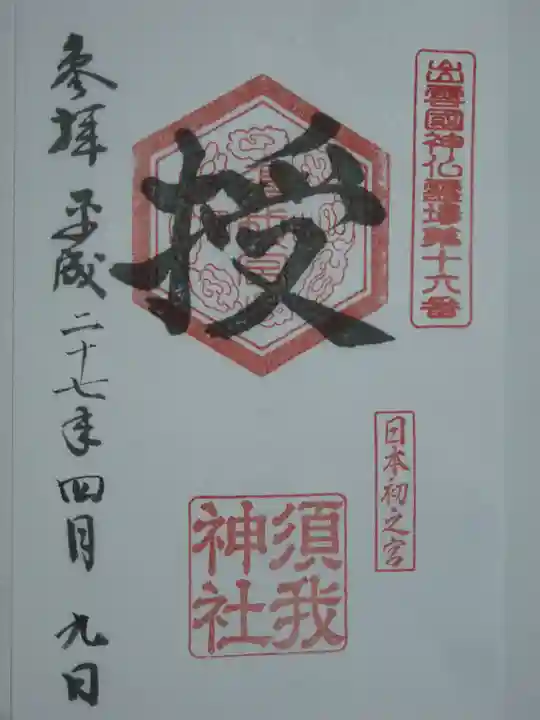 出雲國神仏霊場第十六番
日本初之宮
授
須我
神社
参拝 平成二十七年四月 九日